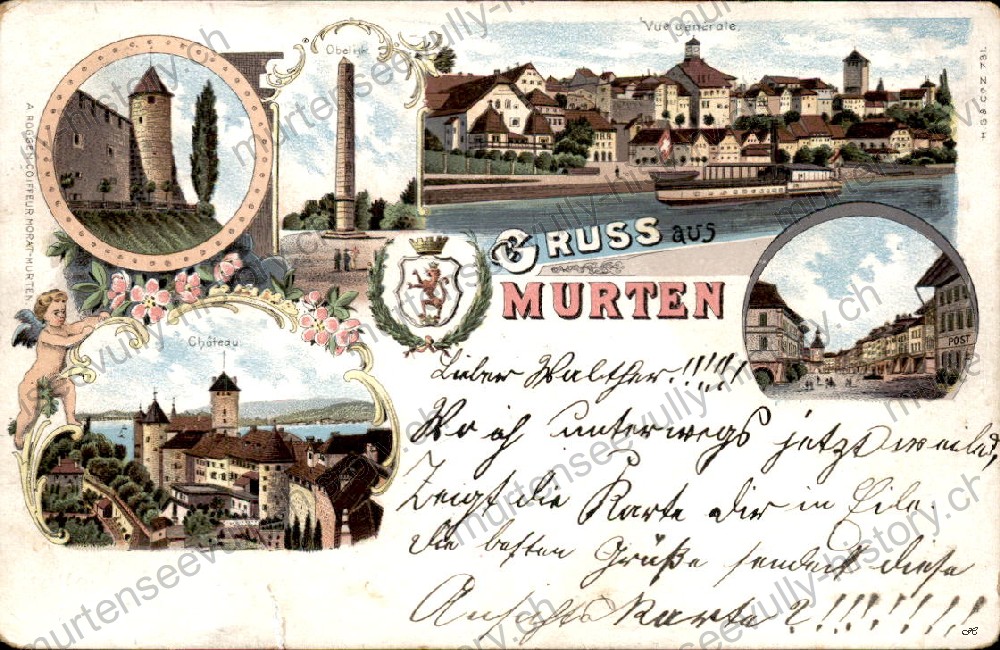 Vue générale.
Obelisk.
H G & C° Z. 731.
A. ROGGEN, COIFFEUR, MORAT-MURTEN.
GRUSS aus
MURTEN
POST
Château.
Lieber Walther!!!!!
Wo ich unterwegs jetzt weile,
Zeigt die Karte dir in Eile.
Die besten Grüße sendet diese
Ansichtskarte?!!!!!!!
murtenseevully-history.ch